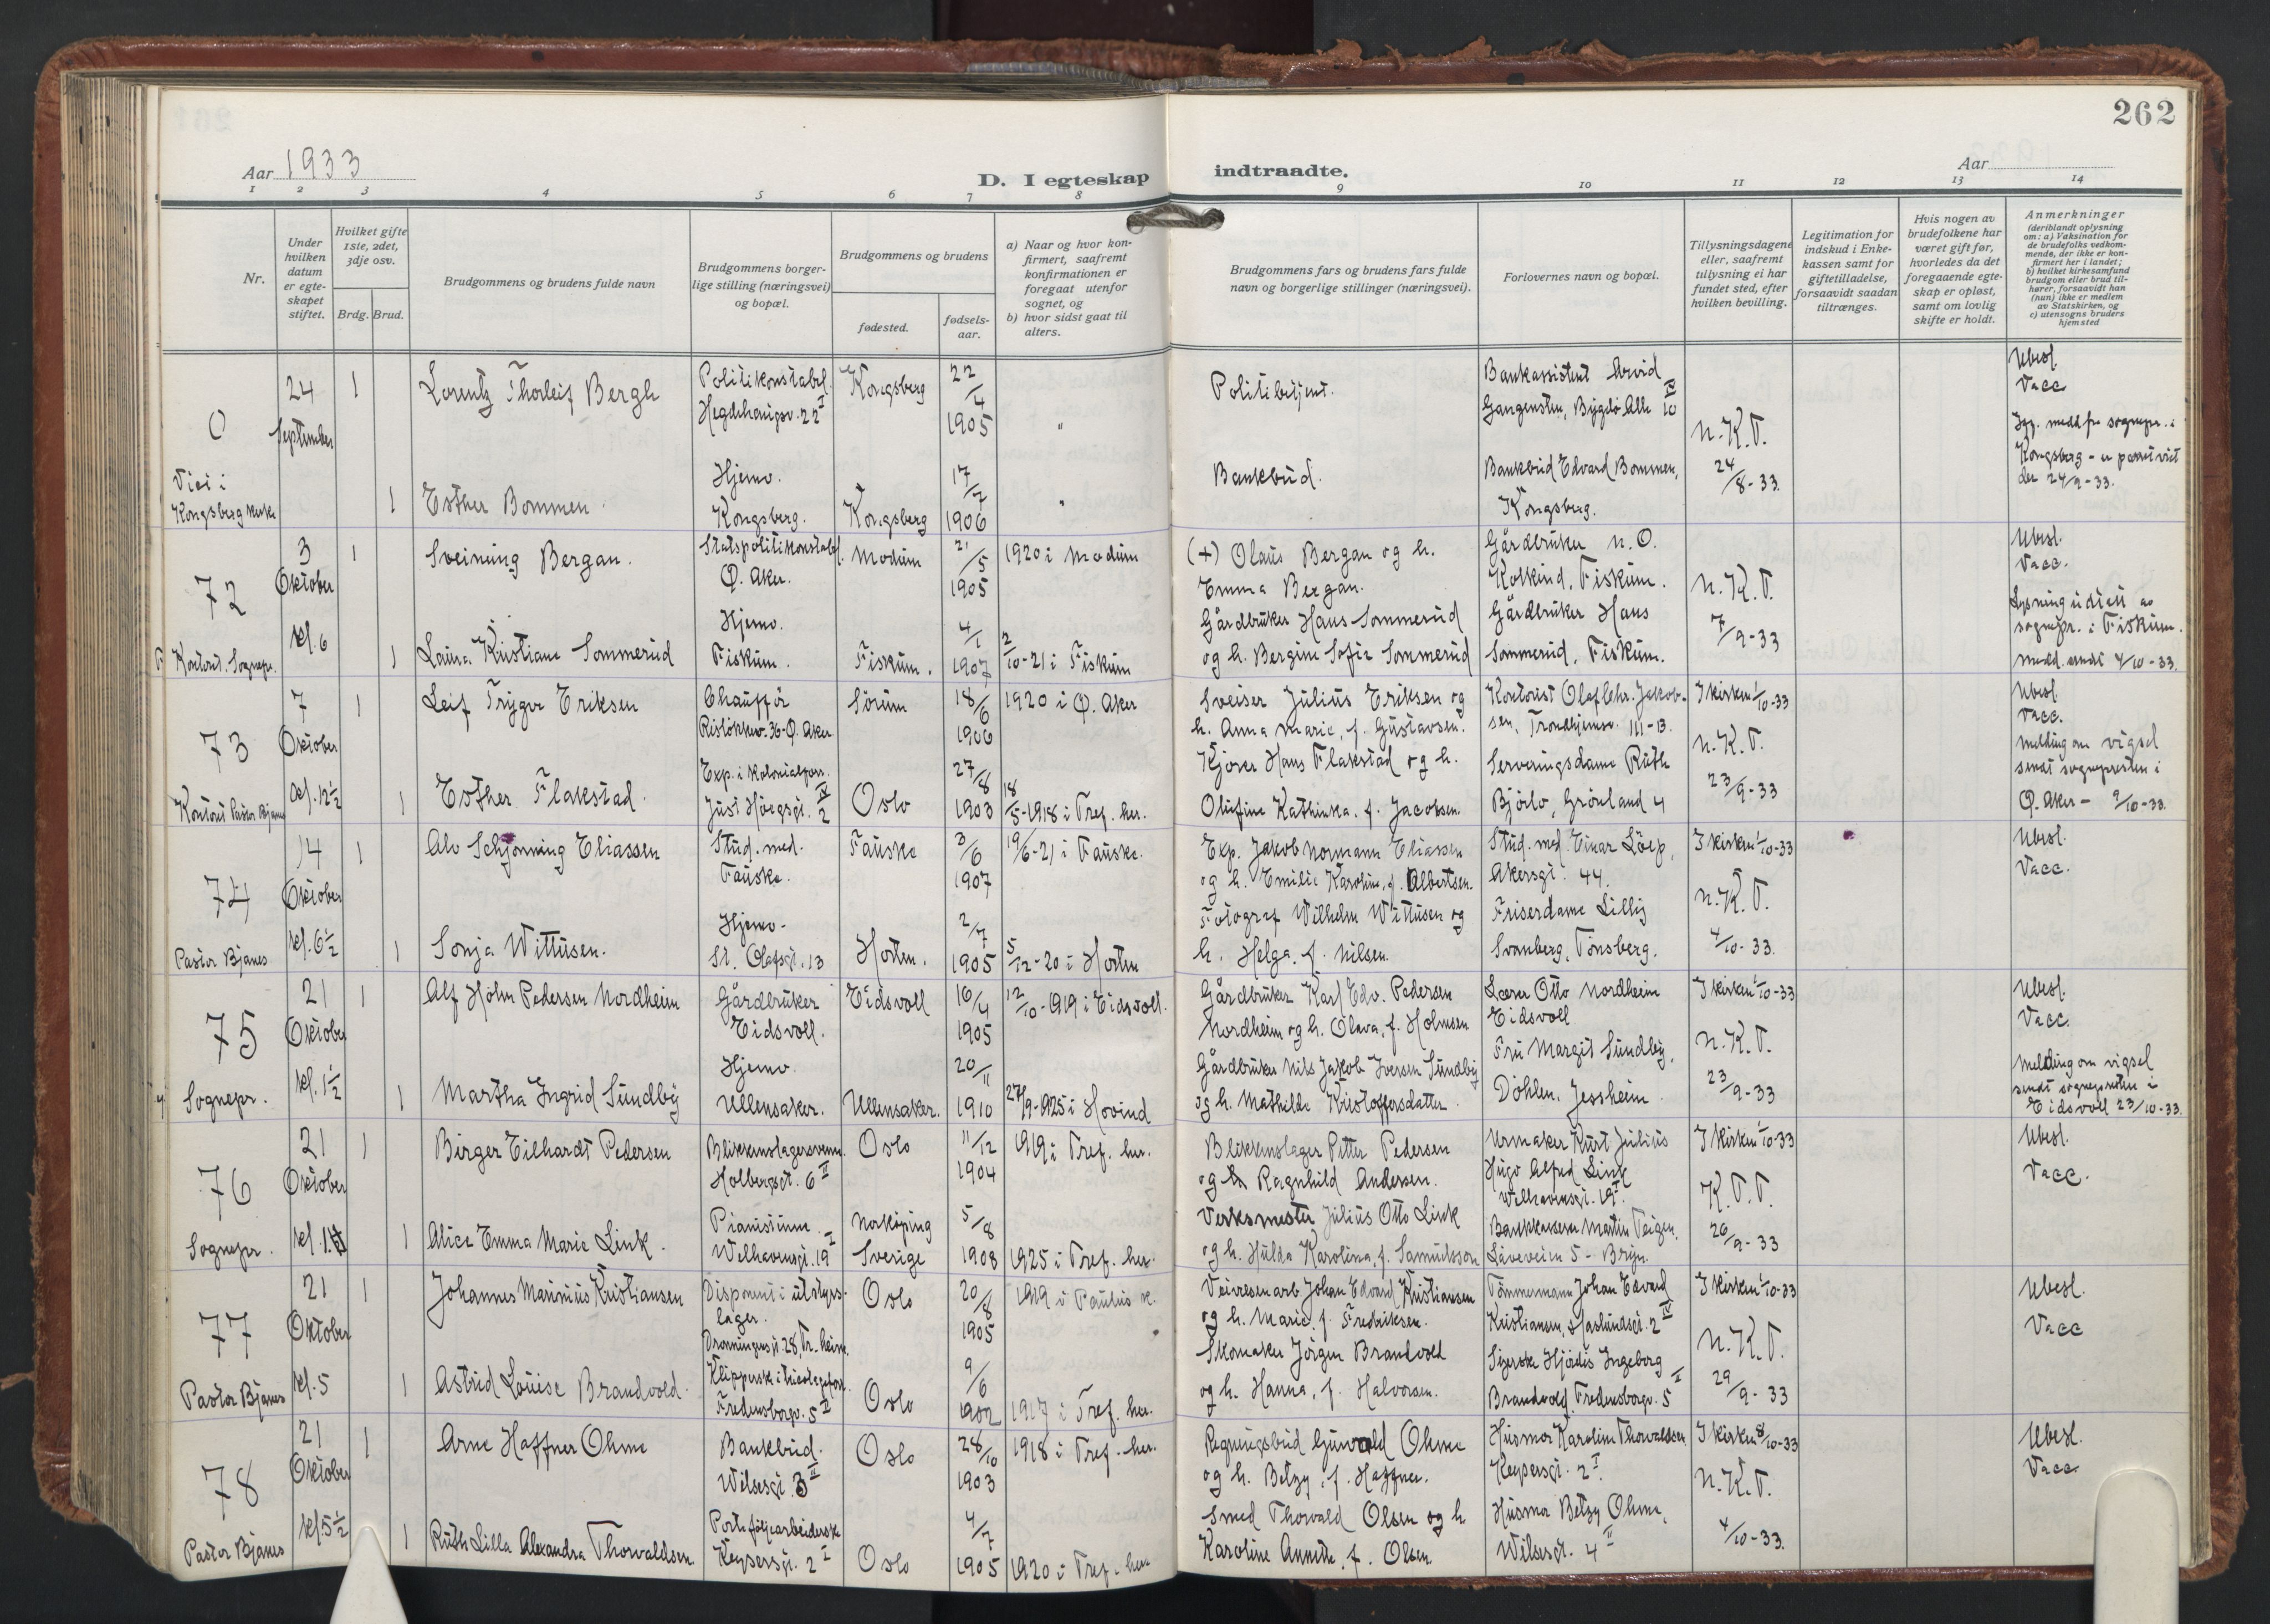 262
Aar 1933
D. I egteskap indtraadte.
Aar
1 2 3 4 5 6 7 8 9 10 11 12 13 14
Nr.
Under hvilken datum er egte-skapet stiftet.
Hvilket gifte 1ste, 2det, 3dje osv.
Brdg. Brud.
Brudgommens og brudens fulde navn
Brudgommens borger-
lige stilling (næringsvei)
og bopæl.
Brudgommens og brudens
fødested.
fødsels-
aar.
a) Naar og hvor kon-
firmert, saafremt
konfirmationen er
foregaat utenfor
sognet, og
b) hvor sidst gaat til
alters.
Brudgommens fars og brudens fars fulde
navn og borgerlige stillinger (næringsvei).
Forlovernes navn og bopæl.
Tillysningsdagene
eller, saafremt
tillysning ei har
fundet sted, efter
hvilken bevilling.
Legitimation for
indskud i Enke-
kassen samt for
giftetilladelse,
forsaavidt saadan
tiltrænges.
Hvis nogen av
brudefolkene har
været gift før,
hvorledes da det
foregaaende egte-
skap er opløst,
samt om lovlig
skifte er holdt.
Anmerkninger
(deriblandt oplysning
om: a) Vaksination for
de brudefolks vedkom-
mende, der ikke er kon-
firmert her i landet;
b) hvilket kirkesamfund
brudgom eller brud til-
hører, forsaavidt han
(hun) ikke er medlem
av Statskirken, og
c) utensogns bruders
hjemsted
0
24 September
1
Lorentz Thorleif Bergh
Politikonstabel.
Hegdehaugsv. 22 I
Kongsberg
22/4 1905
"
Politibetjent.
Bankassistent Arvid
Gangensten, Bygdø Alle 10 IV
n. K. T.
24/8-33.
Ubesl.
Vacc
Viet i
Kongsberg kirke
1
Esther Bommen.
Hjemv.
Kongsberg.
Kongsberg
17/7 1906
"
Bankbud.
Bankbud Edvard Bommen,
Kongsberg.
Kongsberg - er paret viet
der 24/9-33.
72
3 Oktober
kl. 6
1
Sveinung Bergan.
Statspolitikonstabl.
Ø. Aker.
Modum
21/5 1905
1920 i Modum
(+) Olaus Bergan og h.
Emma Bergan.
Gårdbruker N. O.
Kolkind, Fiskum.
n. K. T.
7/9-33
Ubesl.
Vacc.
Kontoret. Sognepr.
1
Laura Kristiane Sommerud
Hjemv.
Fiskum.
Fiskum.
4/1 1907
2/10-21 i Fiskum
Gårdbruker Hans Sommerud
og h. Bergine Sofie Sommerud
Gårdbruker Hans
Sommerud, Fiskum.
Lysning utstett av
sognepr. i Fiskum.
Medd. sendt 4/10-33.
73
7 Oktober
kl. 12½
1
Leif Trygve Eriksen
Chauffør
Risløkkv. 36 - Ø. Aker
Sørum
18/6 1906
1920 i Ø. Aker
Sveiser Julius Eriksen og
h. Anna Marie, f. Gustavsen.
Kontorist Olaf Chr. Jakob-
sen, Trondhjemsv. 111-13.
I kirken 1/10-33
n. K. T.
23/9-33
Ubesl.
Vacc.
Kontoret Pastor Bjanes
1
Esther Flakstad.
Exp. i kolonialforr.
Just Høegsgt. 2 IV
Oslo
27/8 1903
18/5-1918 i Tref. her.
Kjører Hans Flakstad og h.
Olufine Kathinka, f. Jacobsen.
Serveringsdame Ruth
Bjørlo, Grønland 4
Melding om vigsel
sendt sognepresten i
Ø. Aker - 9/10-33.
74
14 Oktober
kl. 6½
1
Alv Schjønning Eliassen
Stud. med.
Fauske.
Fauske
3/6 1907
19/6-21 i Fauske.
Exp. Jakob Normann Eliassen
og h. Emilie Karoline, f. Albertsen.
Stud. med. Einar Löep,
Akersgt. 44.
I kirken 1/10-33
n. K. T.
4/10-33.
Ubesl.
Vacc.
Pastor Bjanes
1
Sonja Wittusen.
Hjemv-
St. Olafsgt. 13
Horten.
2/7 1905
5/12-20 i Horten
Fotograf Wilhelm Wittusen og
h. Helga, f. Nilsen.
Friserdame Lilly
Svanberg, Tønsberg.
75
21 Oktober
kl. 1½
1
Alf Holm Pedersen Nordheim
Gårdbruker
Eidsvoll.
Eidsvoll
16/4 1905
12/10-1919 i Eidsvoll.
Gårdbruker Karl Edv. Pedersen
Nordheim og h. Olava, f. Holmsen
Lærer Otto Nordheim
Eidsvoll
I kirken 1/10-33
n. K. T.
23/9-33
Ubesl.
Vacc.
Sognepr.
1
Martha Ingrid Sundby
Hjemv.
Ullensaker.
Ullensaker.
20/11 1910
27/9-1925 i Hovind
Gårdbruker Nils Jakob Iversen Sundby
og h. Mathilde Kristoffersdatter.
Fru Margit Sundby,
Döhlen, Jessheim
Melding om vigsel
sendt sognepresten i
Eidsvoll 23/10-33.
76
21 Oktober
1
Birger Eilhardt Pedersen
Blikkenslagersvenn.
Holbergsgt. 6 II
Oslo
11/12 1904
1919 i Tref. her.
Blikkenslager Petter Pedersen
og Ragnhild Andersen.
Urmaker Kurt Julius
Hugo Alfred Link
Welhavensgt. 19 I.
I kirken 1/10-33
K. T. T.
26/9-33
Ubesl.
Vacc.
Sognepr.
1
Alice Emma Marie Link.
Pianistinne.
Welhavensgt. 19 I
Norköping
Sverige
5/8 1908
1925 i Tref. her.
Verksmester Julius Otto Link
og h. Hulda Karolina, f. Samuelsson
Bankkasserer Martin Teigen,
Låveveien 5 - Bryn.
77
21 Oktober
kl. 5
1
Johannes Marinius Kristiansen
Disponent i utstyrs-
lager.
Dronningensgt. 28, Tr.heim.
Oslo
20/8 1905
1919 i Paulus k.
Veivesenarb. Johan Edvard Kristiansen
og h. Marie, f. Fredriksen.
Tømmermann Johan Edvard
Kristiansen, Haslundsgt. 2 IV
I kirken 1/10-33
n. K. T.
29/9-33
Ubesl.
Vacc
Pastor Bjanes
1
Astrid Louise Brandvold.
Klipperske i tricotagefor.
Fredensborgv. 5 II
Oslo
9/6 1902
1917 i Tref. her.
Skomaker Jörgen Brandvold
og h. Hanna, f. Halvorsen.
Syerske Hjördis Ingeborg
Brandvold, Fredensborgv. 5 II
78
21 Oktober
kl. 5½
1
Arne Haffner Ohme
Bankbud.
Wilsesgt. 3 II
Oslo
28/10 1903
1918 i Tref. her.
Regningsbud Gunvald Ohme
og h. Betzy, f. Haffner.
Husmor Karoline Thorvaldsen
Keysersgt. 2 I.
I kirken 8/10-33
n. K. T.
4/10-33.
Ubesl.
Vacc.
Pastor Bjanes
1
Ruth Lilla Alexandra Thorvaldsen.
Porteføljearbeiderske
Keysersgt. 2 I
Oslo
4/7 1905
1920 i Tref. her
Smed Thorvald Olsen og h.
Karoline Annette, f. Olsen.
Husmor Betzy Ohme,
Wilsesgt. 4 II